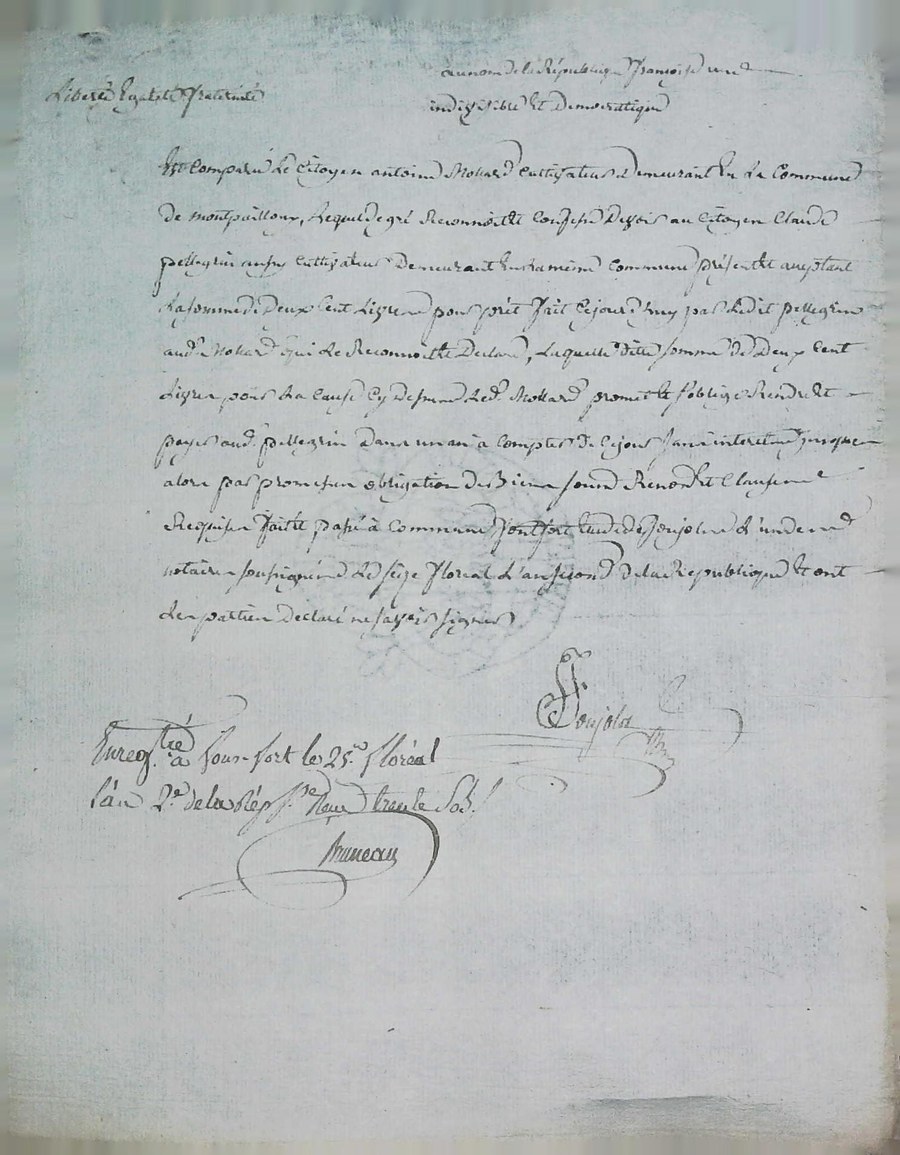 au nom de la République françoise une
Liberté Egalité fraternité
indivisible Et Democratique
Est Comparu Le Citoyen antoine Mollard Cultivateur Demeurant En La Commune
De montpaillour, Lequel de gré Reconnoit Et Confesse Devoir au Citoyen Claude
pellegrin aussy Cultivateur Demeurant En la même Commune présent Et acceptant
La somme de Deux Cent Livres pour prêt fait Ce jourd'huy par Ledit pellegrin
aud. Mollard qui Le Reconnoit Et Declare, Laquelle dite somme de Deux Cent
Livres pour La Cause Cy Dessus Led. Mollard promet Et s'oblige Rendre Et
payer aud. pellegrin dans un an à Compter de Ce jour sans interet jusque
alors par promesse obligation de Biens soum. Renon. Et Clauses
Requises fait Et passé à Commune fontfort Etude de Goujolon L'un des
notaires soussignés Le Seize floreal L'an second de la République Et ont
Les parties Declaré ne savoir signer
Enreg.tré à fons-fort le 25.e floréal
l'an 2.e de la Rép. Reçu trente Sols
Bruneau